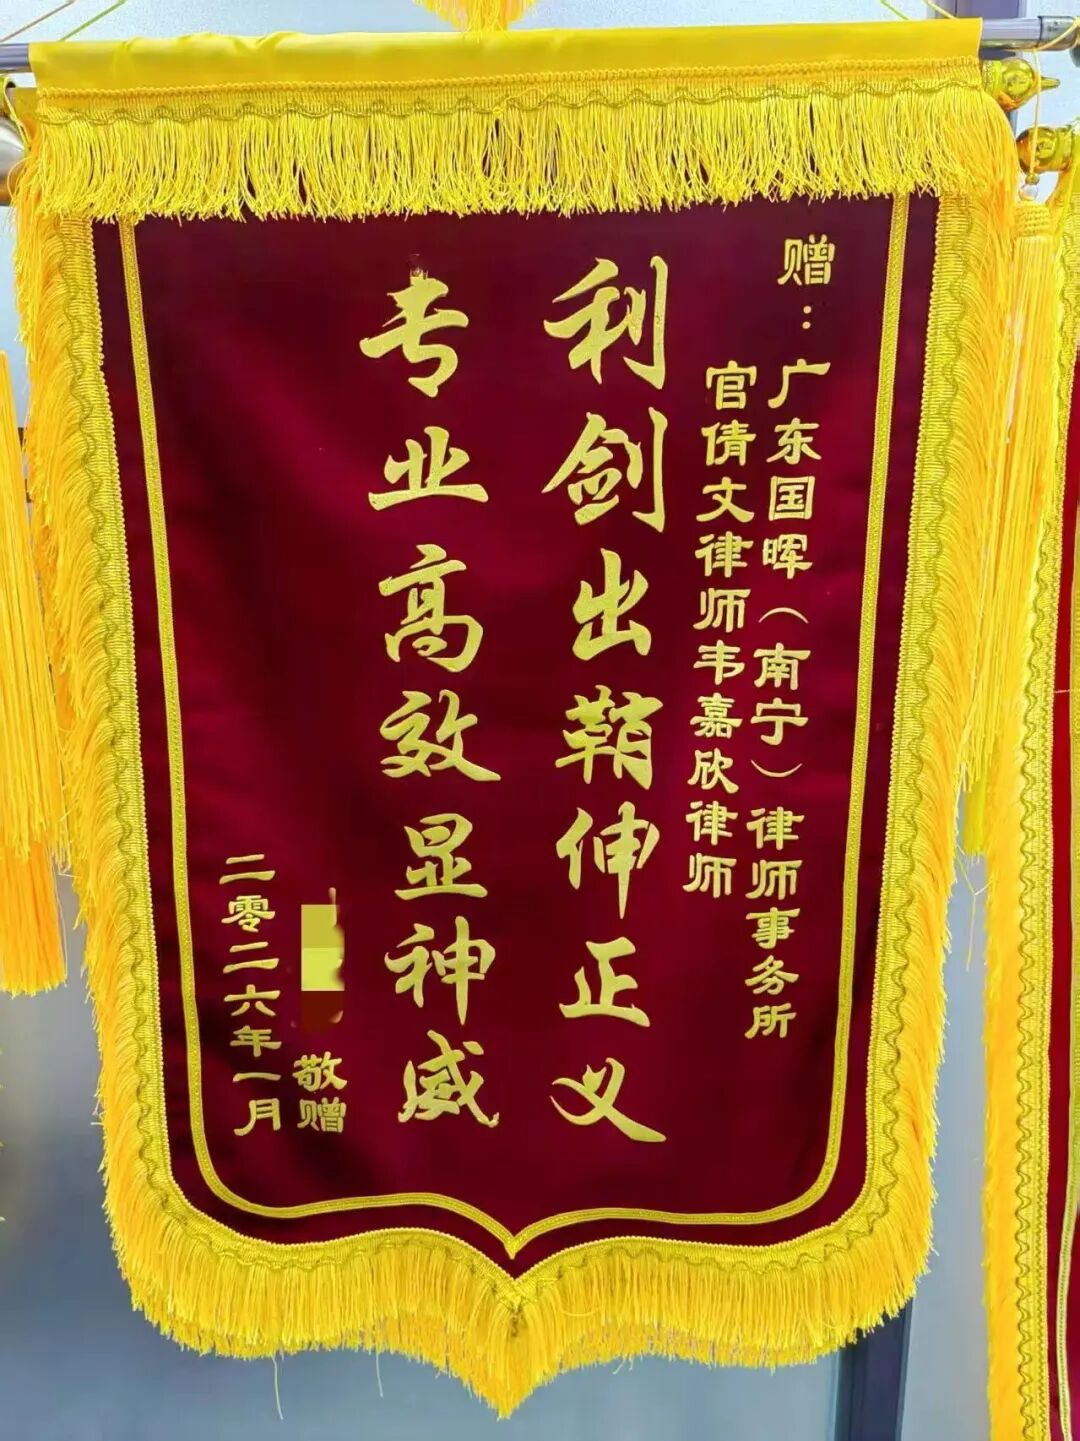 赠：广东国晖（南宁）律师事务所
官倩文律师韦嘉欣律师
利剑出鞘伸正义
专业高效显神威
敬赠
二零二六年一月